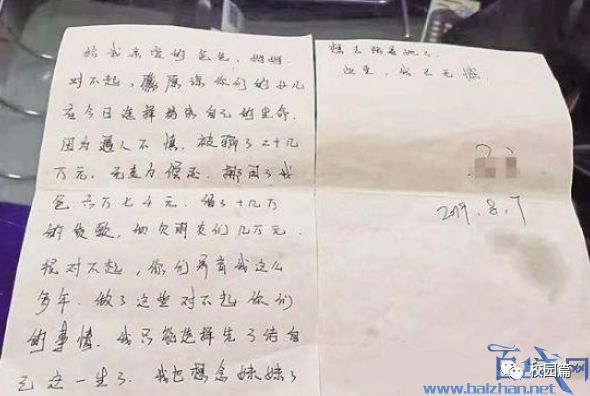 给我亲爱的爸爸、妈妈
对不起,原谅你们的女儿
在今日选择结束自己的生命.
因为遇人不慎,被骗了二十几
万元.无力偿还.挪用了我
爸六万七千元.借了十几万
的贷款,加欠朋友们几万元.
很对不起,你们养育我这么
多年.做了这些对不起你们
的事情.我只能选择先了结自
己这一生了.我也想念妹妹了
想去陪着她了
这里,我已无憾.
2019.8.7
校园篇
www.baizhan.net